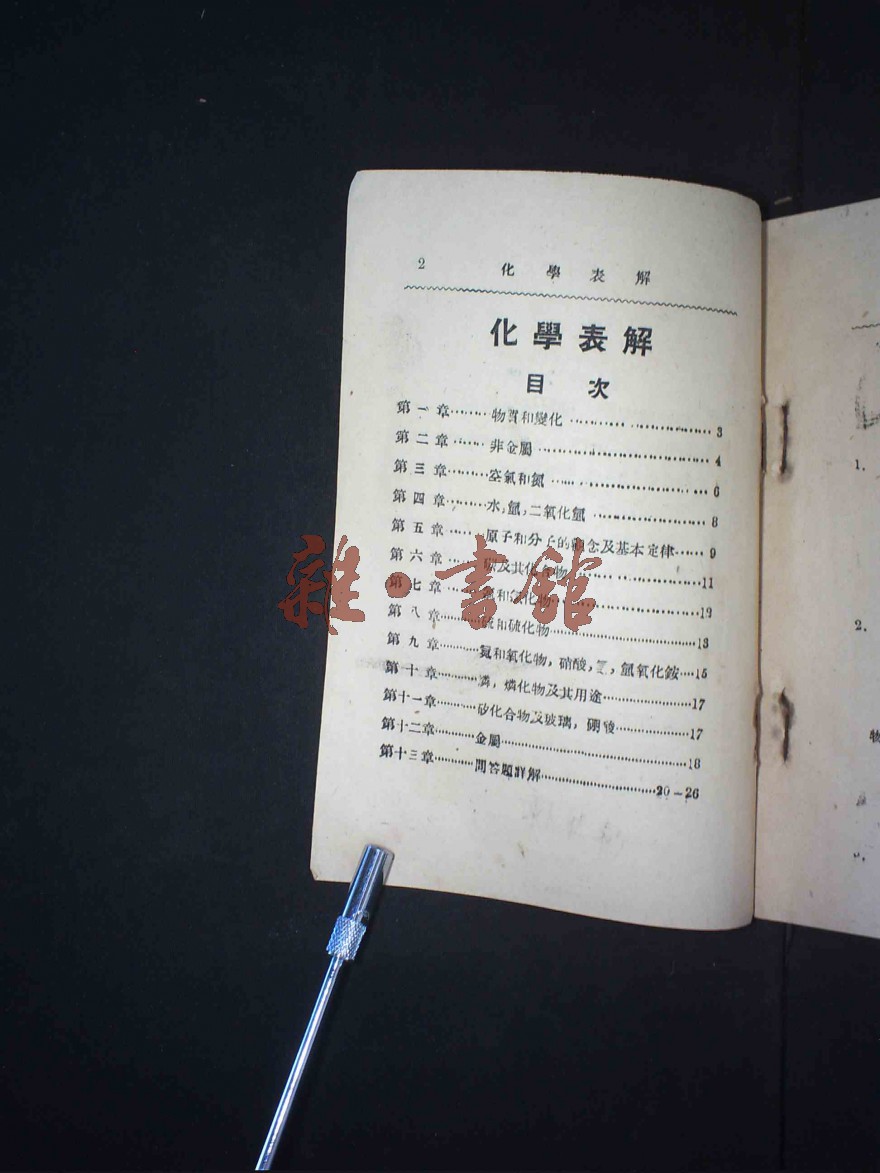 2 化學表解
化學表解
目次
第一章………物質和變化………3
第二章………非金屬………4
第三章………空氣和氮………6
第四章………水，氫，二氧化氫………8
第五章………原子和分子的觀念及基本定律……9
第六章………碳及其化合物………11
第七章………和化物………12
第八章………硫和硫化物………13
第九章………氮和氧化物，硝酸，氫氧化銨…15
第十章………燐，燐化物及其用途………17
第十一章………矽化合物及玻璃，硼酸………17
第十二章………金屬………18
第十三章………問答題詳解………20-26
雜·書館
1.
2.
物